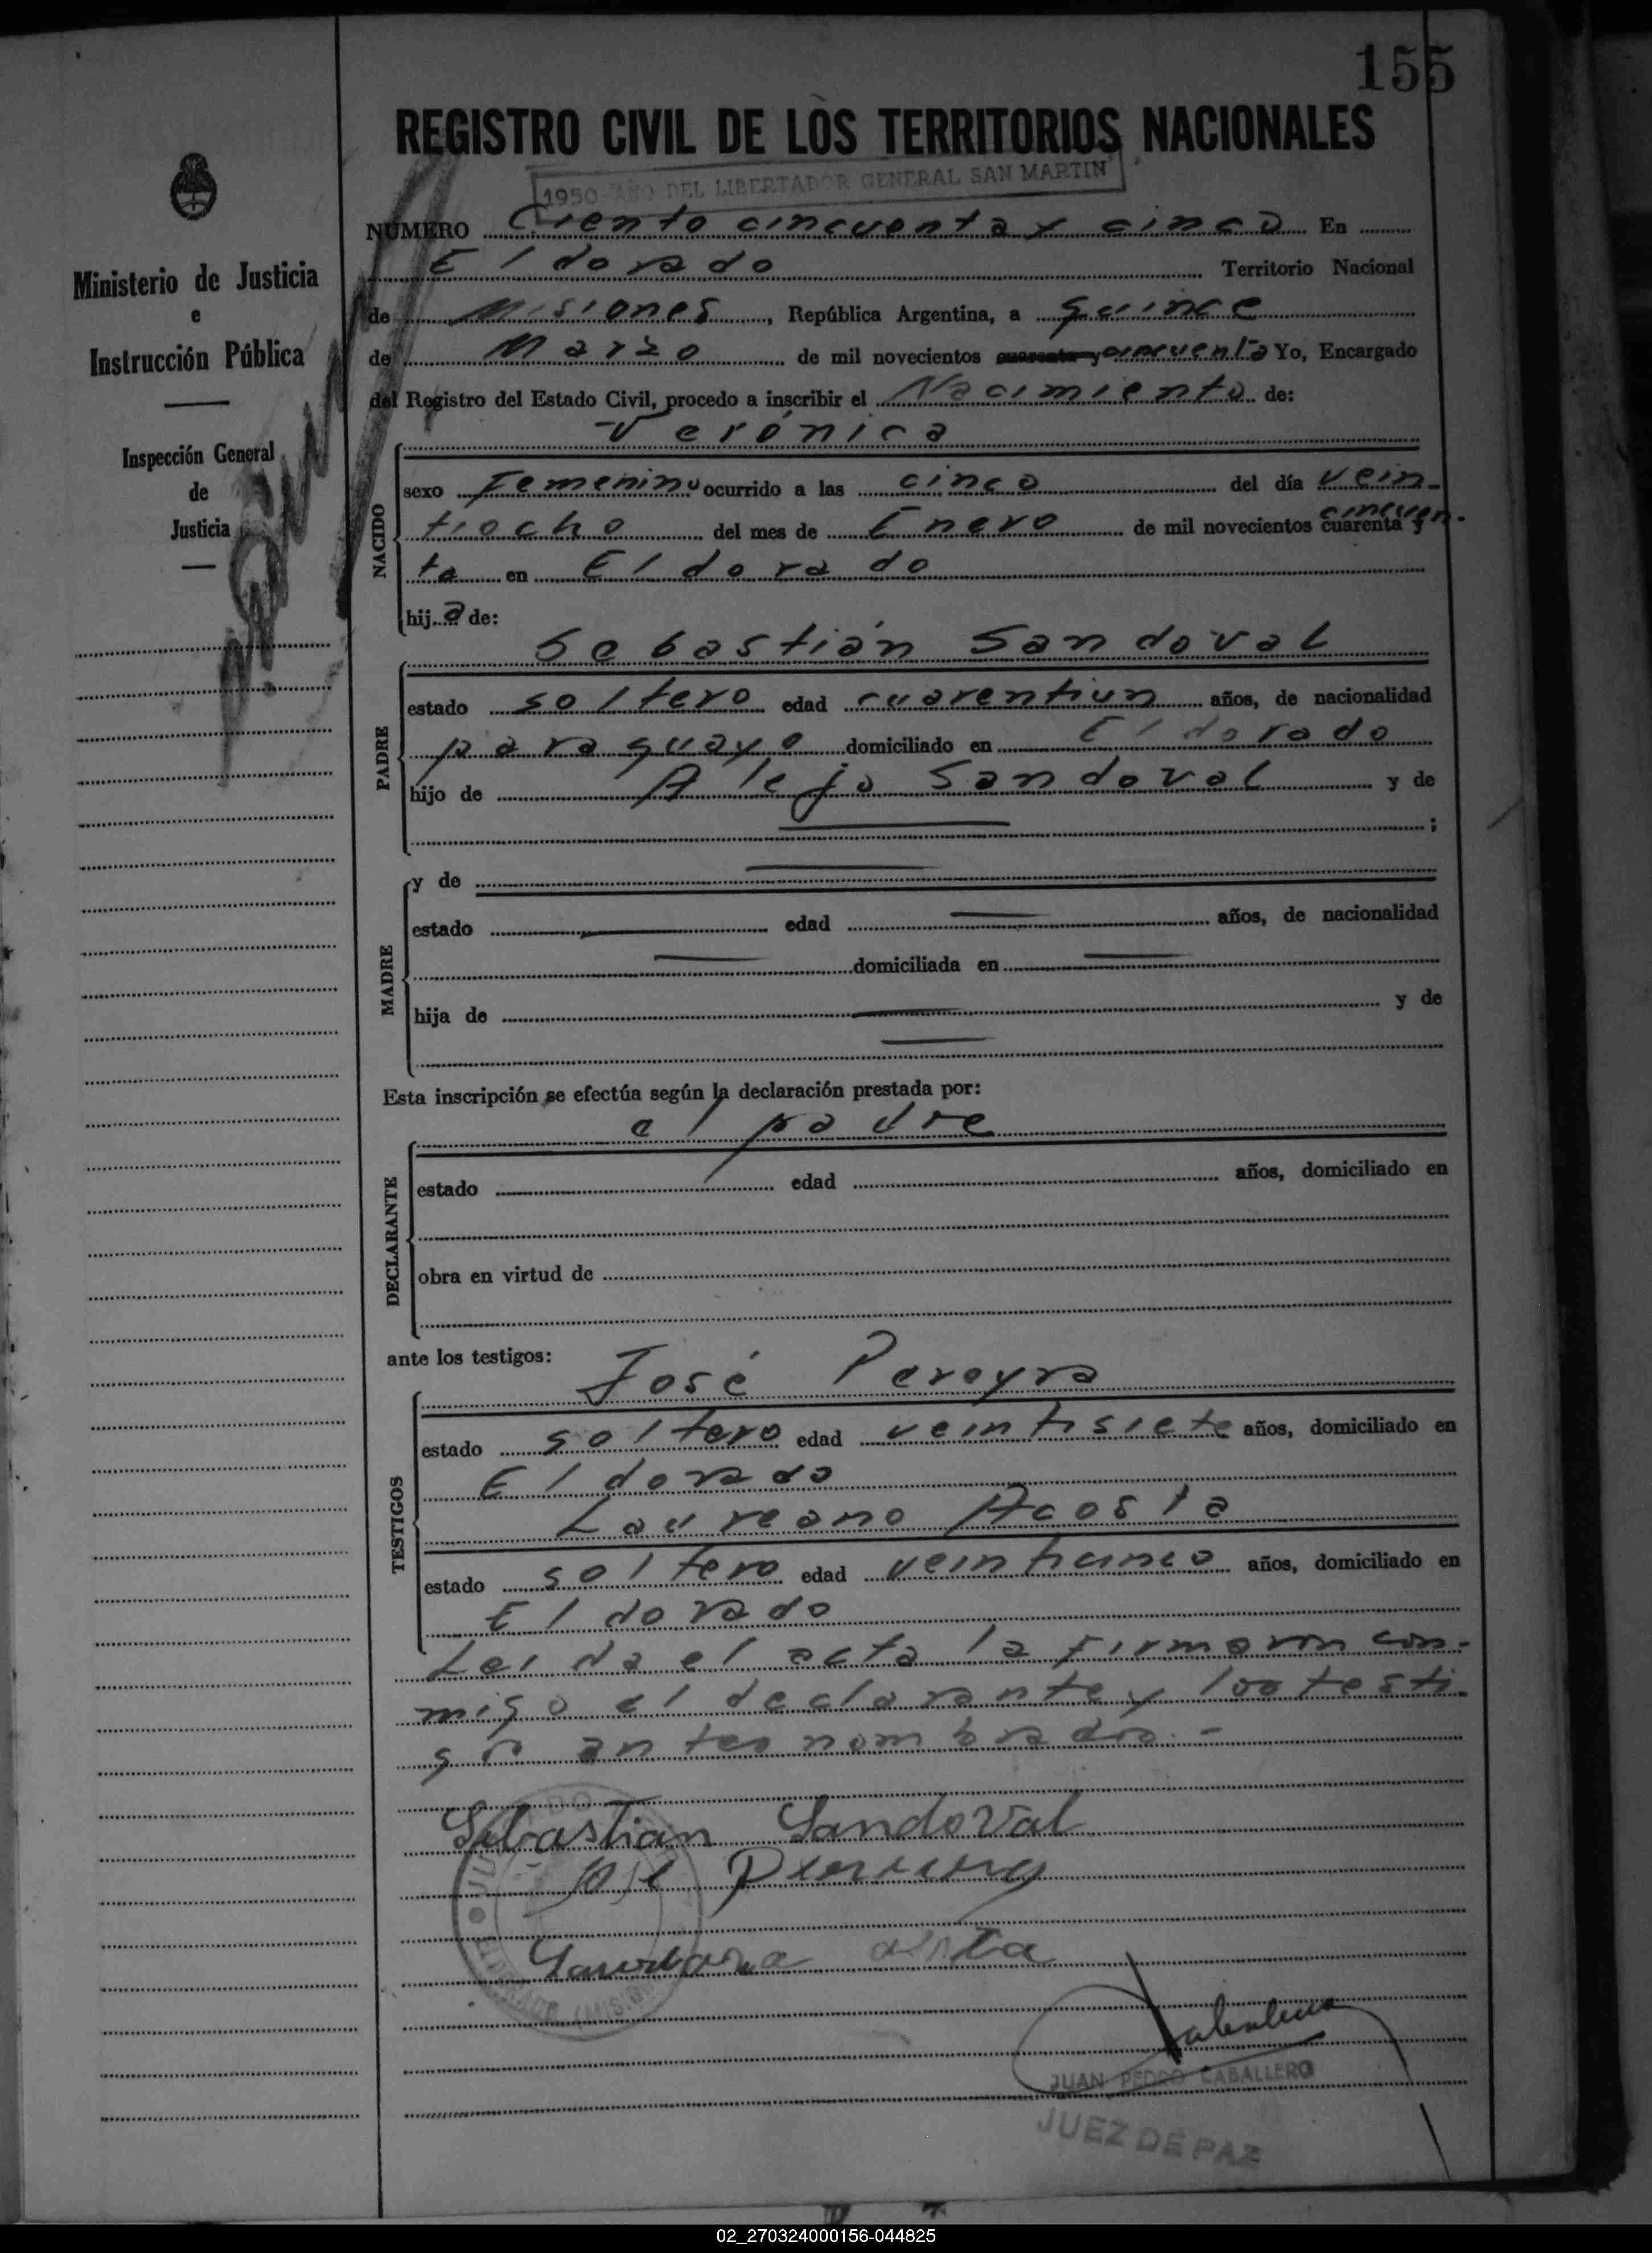 155
REGISTRO CIVIL DE LOS TERRITORIOS NACIONALES
1950 AÑO DEL LIBERTADOR GENERAL SAN MARTIN
Ministerio de Justicia
e
Instrucción Pública
Inspección General
de
Justicia
NÚMERO Ciento cincuenta y cinco En
Eldorado Territorio Nacional
de Misiones, República Argentina, a quince
de Marzo de mil novecientos cuarenta y cincuenta Yo, Encargado
del Registro del Estado Civil, procedo a inscribir el Nacimiento de:
Verónica
NACIDO
sexo Femenino ocurrido a las cinco del día vein-
tiocho del mes de Enero de mil novecientos cuarenta y cincuen-
ta en Eldorado
hija de:
Sebastián Sandoval
PADRE
estado soltero edad cuarentiun años, de nacionalidad
paraguayo domiciliado en Eldorado
hijo de Alejo Sandoval y de
;
MADRE
y de
estado edad años, de nacionalidad
domiciliada en
hija de y de
Esta inscripción se efectúa según la declaración prestada por:
el padre
DECLARANTE
estado edad años, domiciliado en
obra en virtud de
ante los testigos:
José Pereyra
TESTIGOS
estado soltero edad veintisiete años, domiciliado en
Eldorado
Laureano Acosta
estado soltero edad veinticinco años, domiciliado en
Eldorado
Leida el acta la firmaron con-
migo el declarante y los testi-
gos antes nombrados.-
Sebastian Sandoval
José
JUAN PEDRO CABALLERO
JUEZ DE PAZ
02_270324000156-044825